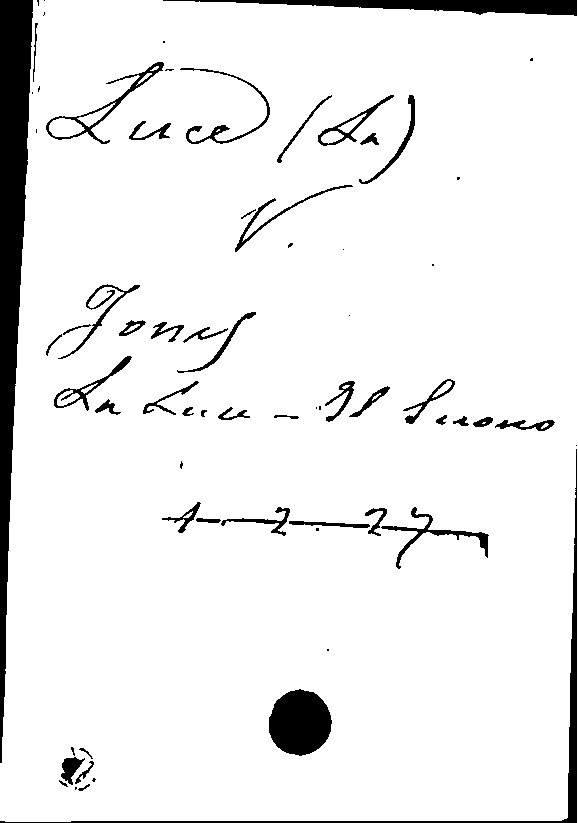 Luce (La)
V.
Jones
La Luce - Il Suono
1. 2. 27